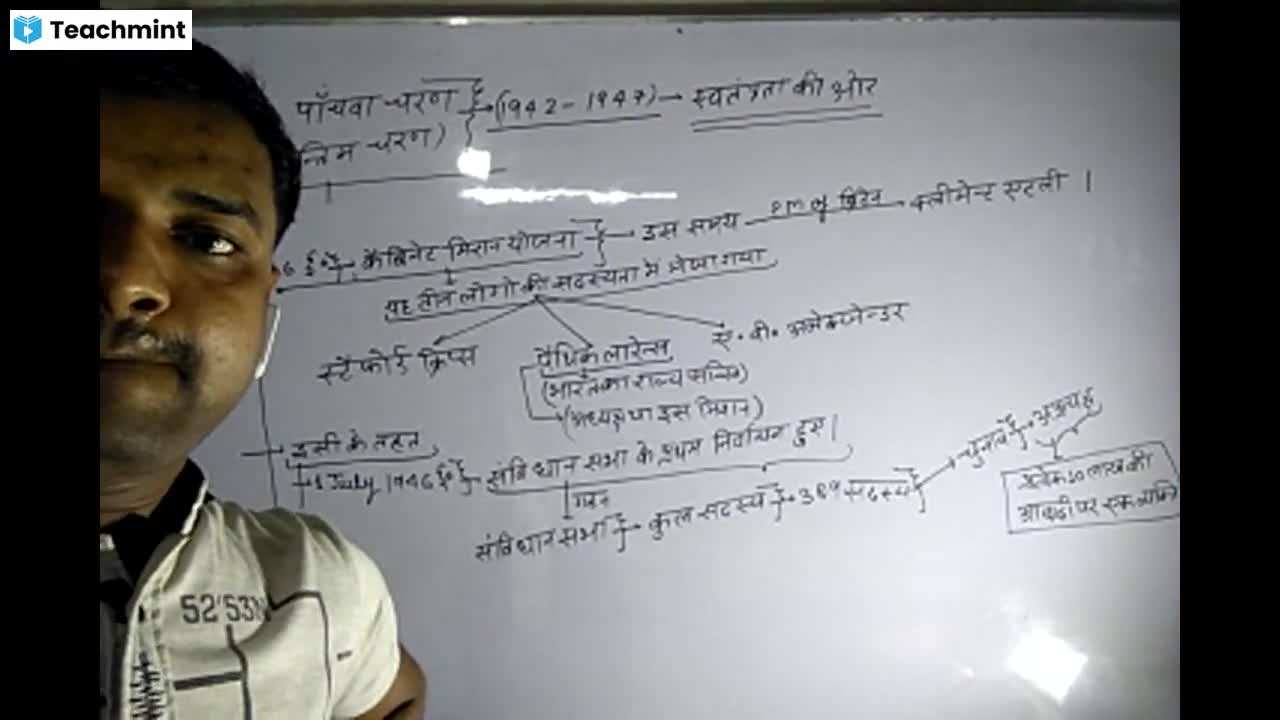 Teachmint
पाँचवा चरण (1942 - 1947) स्वतंत्रता की ओर
न्तिम चरण)
6 ई० कैबिनेट मिशन योजना इस समय PM ब्रिटेन क्लीमेन्ट एटली ।
यह तीन लोगो की सदस्यता मे भेजा गया
स्टैफोर्ड क्रिप्स पैथिक लारेन्स ए. वी. अलेक्जेन्डर
(भारत का राज्य सचिव)
(अध्यक्ष था इस मिशन)
इसी के तहत
1 July 1946 ई० संविधान सभा के प्रथम निर्वाचन हुए।
गठन
संविधान सभा कुल सदस्य 389 सदस्य चुनाव
प्रत्येक 10 लाख की
आबादी पर एक व्यक्ति
52'53'N